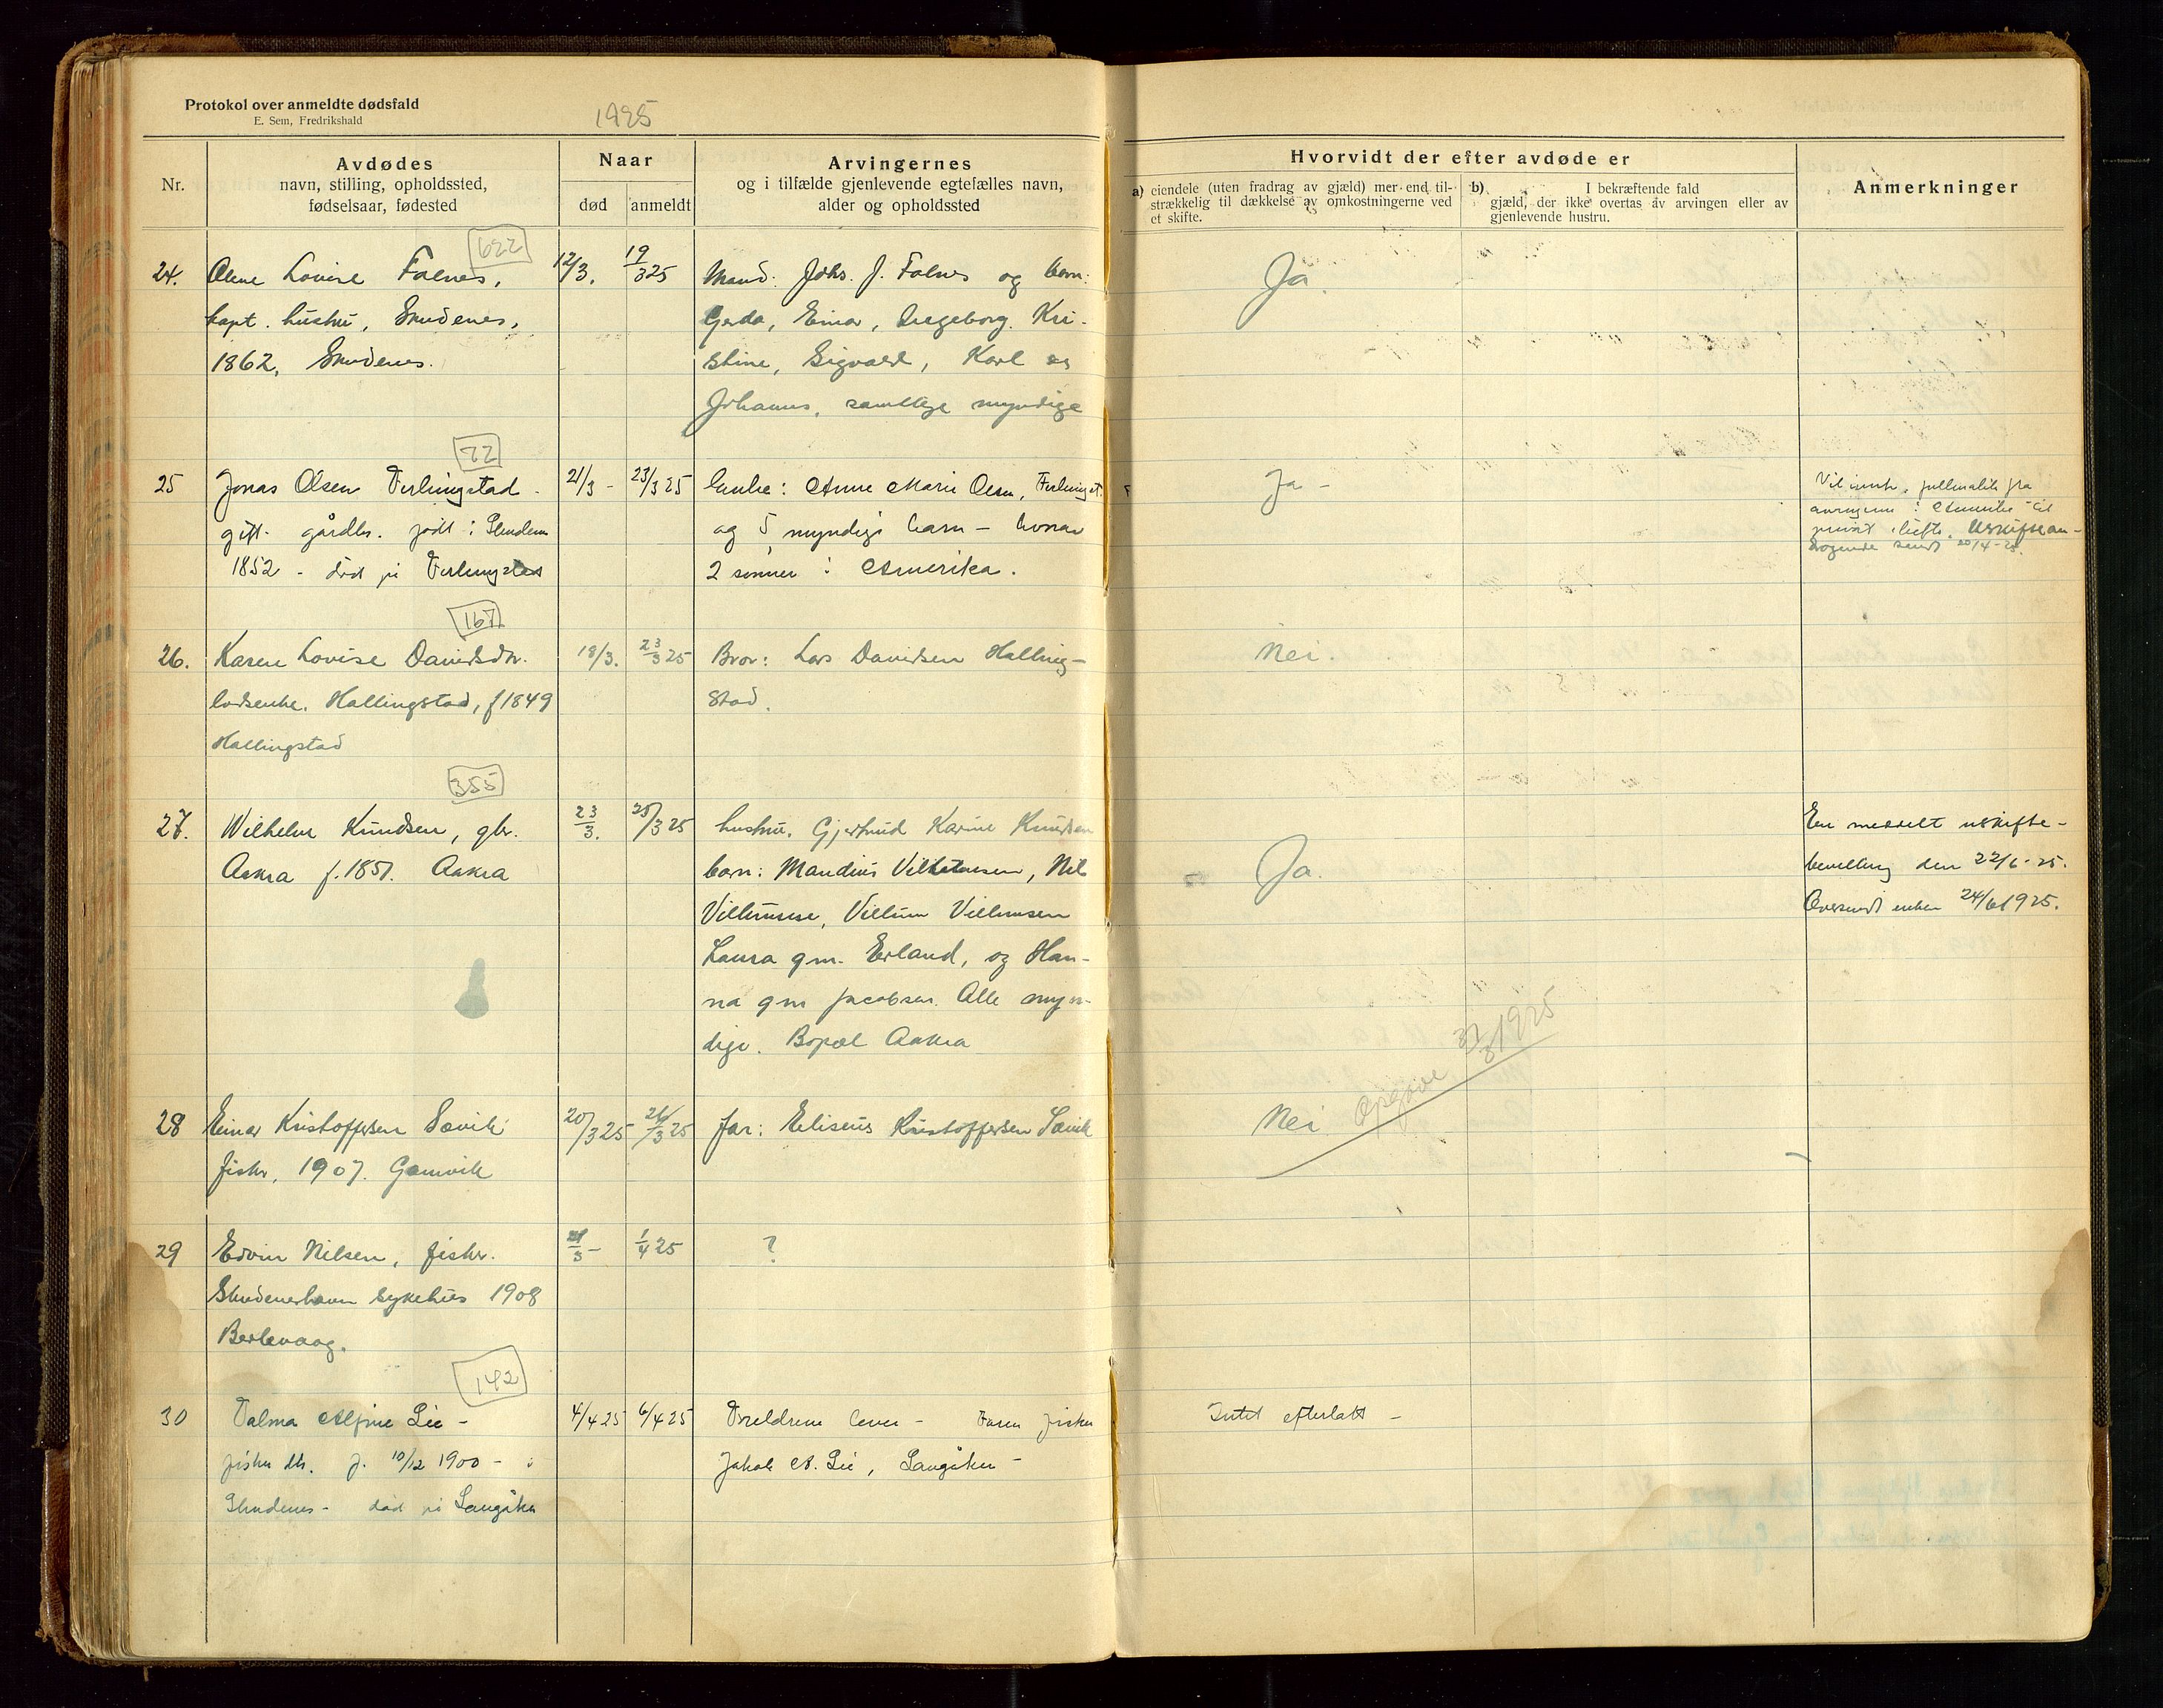 Protokol over anmeldte dødsfald
E. Sem, Fredrikshald
1925
Nr.
Avdødes
navn, stilling, opholdssted,
fødselsaar, fødested
Naar
død
anmeldt
Arvingernes
og i tilfælde gjenlevende egtefælles navn,
alder og opholdssted
Hvorvidt der efter avdøde er
a) eiendele (uten fradrag av gjæld) mer end til-
strækkelig til dækkelse av omkostningerne ved
et skifte.
b) I bekræftende fald
gjæld, der ikke overtas av arvingen eller av
gjenlevende hustru.
Anmerkninger
622
24. Olene Lovise Falnes, 12/3. 19/3 25 Mand: Johs. J. Falnes og barn: Ja.
kapt. hustru, Skudenes, Gerda, Einar, Ingeborg. Kri-
1862, Skudenes. stine, Sigvald, Karl og
Johannes, samtlige myndige
22
25 Jonas Olsen Ferkingstad. 21/3 - 23/3 25 Enke: Anne Marie Olsen, Ferkingst. Ja -
gift. gårdbr. født i Skudenes og 5 myndige barn - hvorav
1852 - død på Ferkingstad 2 sønner i Amerika.
fullmakt fra
arvingene i Amerika til
privat skifte. Uskiftean-
dragende sendt 20/4-25.
167
26. Karen Lovise Davidsdtr. 18/3. 23/3 25 Bror: Lars Davidsen Halling- Nei.
losenke. Hallingstad, f 1849 stad.
Hallingstad
355
27. Wilhelm Knudsen, gbr. 23/3. 25/3 25 hustru. Gjertrud Karine Knudsen
Aakra f. 1851. Aakra barn: Mandius Vilhelmsen, Nils Ja.
Villumsen, Villum Villumsen
Laura gm. Erland, og Han-
na gm Jacobsen. Alle myn-
dige. Bopæl Aakra
Er meddelt uskifte-
bevilling den 22/6-25.
Oversendt enken 24/6 1925.
28 Einar Kristoffersen Sævik 20/3 25 26/3 25 far: Eliseus Kristoffersen Sævik Nei
fisker, 1907. Gamvik
Opgave 1925
29 Edvin Nilsen, fisker. 1/4 25 ?
Skudeneshavn sykehus 1908
Berlevaag.
142
30 Valma Alfine Lie - 4/4 25 6/4 25 Foreldrene lever - Faren fisker Intet efterlatt -
fisker dtr. f. 10/12 1900 - i Jakob A. Lie, Langåker -
Skudenes - død på Langåker